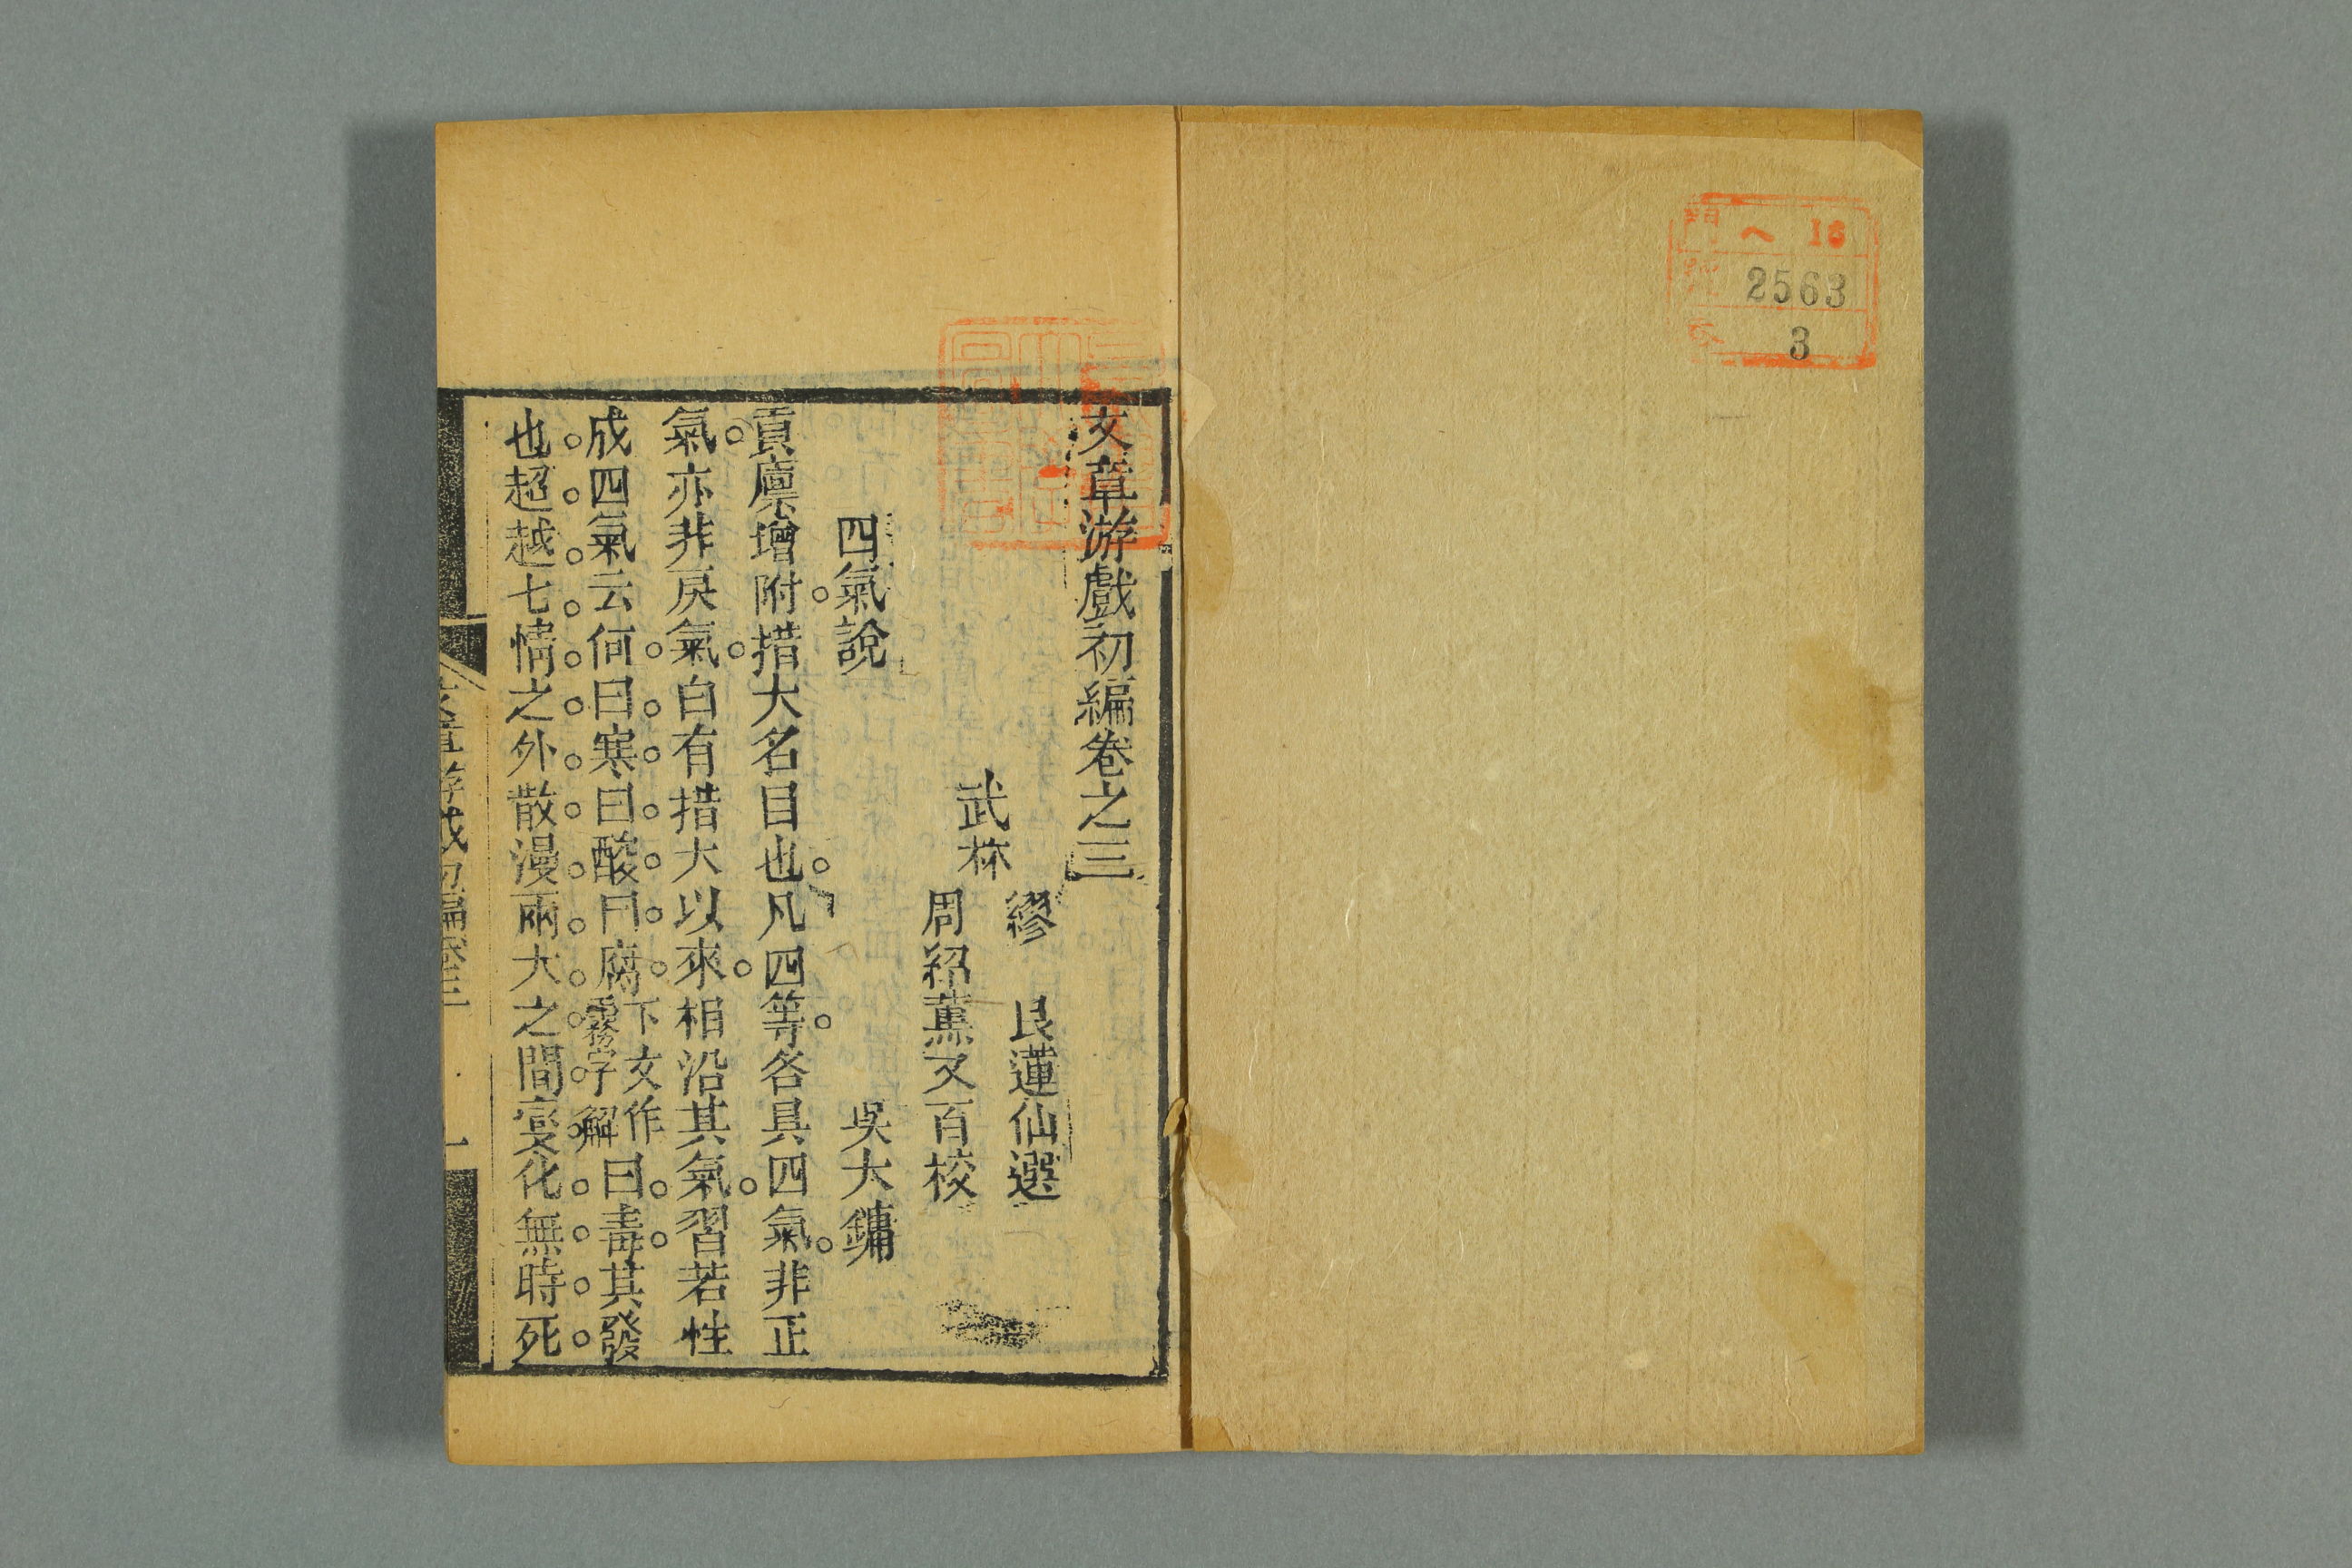 門 ヘ 18
2563
3
文章游戲初編卷之三
武林
繆 艮蓮仙選
周紹薰又百校
四氣說 吳大鏞
貢廩增附。措大名目也。凡四等。各具四氣。非正
氣。亦非戾氣。自有措大以來。相沿其氣。習若性
成四氣云何。曰寒。曰酸。曰腐。下文作霧字解曰毒。其發
也。超越七情之外。散漫兩大之間。變化無時。死